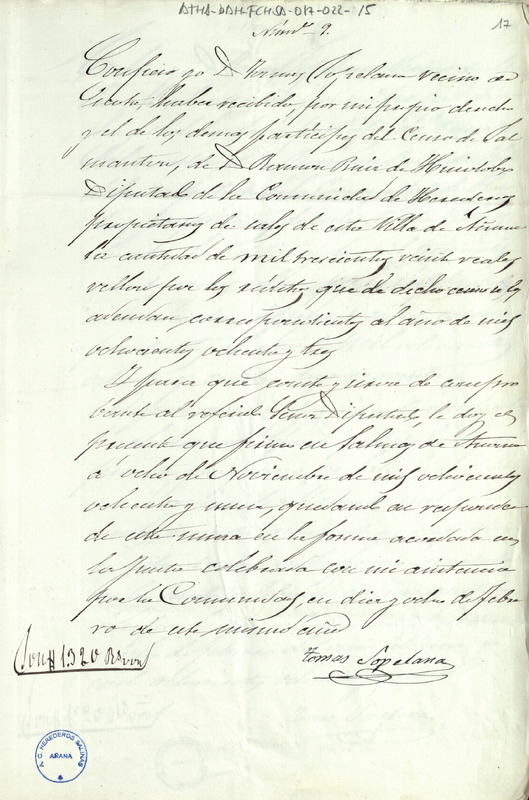 ATHA-DAH-FCHSA-017-022-15
17
Núm.º 9.
Confieso yo D. Tomas Sopelana vecino de
haber recibido, por mi propio derecho
y el de los demas participes del Censo de Sal
manton, de D. Ramon Ruiz de
Diputado de la Comunidad de Herederos
propietarios de sales de esta Villa de Añana
la cantidad de mil trescientos veinte reales
vellon por los réditos que de dicho censo se les
adeudan, correspondientes al año de mil
ochocientos ochenta y tres
Y para que conste y sirva de compro
bante al referido Señor Diputado, le doy el
presente que firmo en Salinas de Añana
á ocho de Noviembre de mil ochocientos
ochenta y nueve, quedando a responder
de este
en la forma acordada en
la Junta celebrada con mi asistencia
por la Comunidad, en diez y ocho de Febre
ro de este mismo año
Son 1320 Rs von
Tomas Sopelana
A. C. HEREDEROS SALINAS
AÑANA